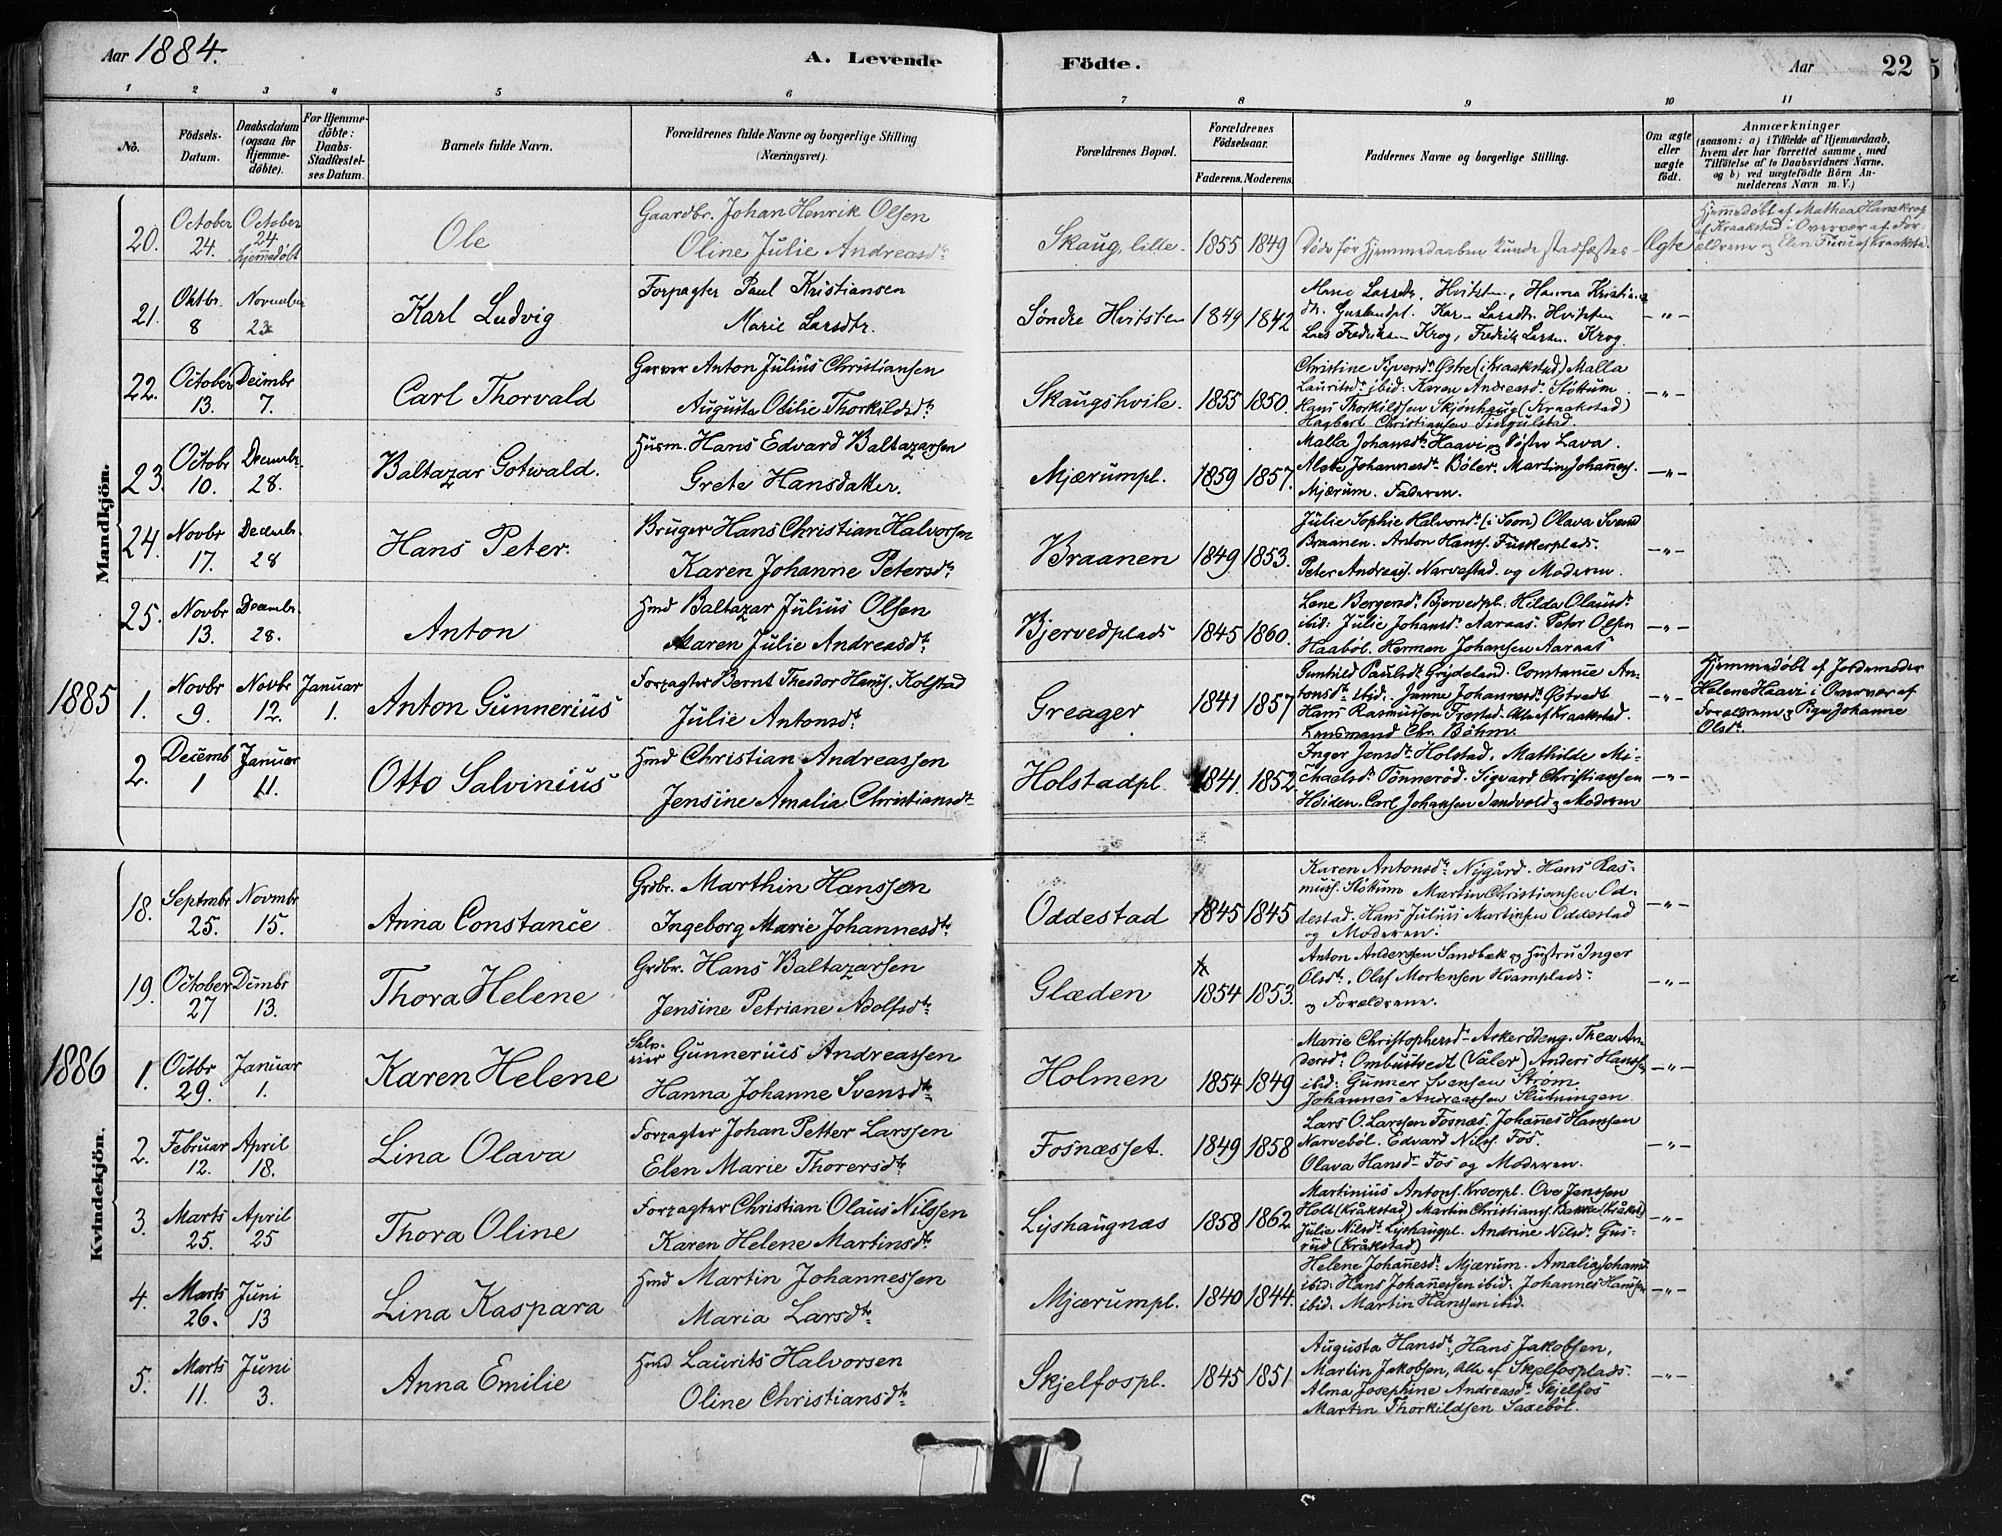 Aar 1884. A. Levende Födte. Aar 22
1 2 3 4 5 6 7 8 9 10 11
No. Födsels-Datum. Daabsdatum (ogsaa for Hjemme-döbte). For Hjemme-döbte: Daabs-Stadfæstel-ses Datum. Barnets fulde Navn. Forældrenes fulde Navne og borgerlige Stilling (Næringsvei). Forældrenes Bopæl. Forældrenes Födselsaar. Faderens. Moderens. Faddernes Navne og borgerlige Stilling. Om ægte eller uægte födt. Anmærkninger (saasom: a) i Tilfælde af Hjemmedaab, hvem der har forrettet samme, med Tilföielse af to Daabsvidners Navne, og b) ved uægtefödte Börn An-melderens Navn m. V.)
Mandkjön.
20. October 24. October 24 hjemmedøbt Ole Gaardbr. Johan Henrik Olsen
Oline Julie Andreasdtr. Skaug, lille. 1855 1849 Døde før Hjemmedaaben kunde stadfæstes Ægte Hjemmedøbt af Mathea
af Kraakstad i Overvær af For-
ældrene og Elen af Kraakstad
21. Oktbr. 8 November 23 Karl Ludvig Forpagter Paul Kristiansen
Marie Larsdtr. Søndre Hvitsten 1849 1842 Larsdtr. Hvitsten, Hanna
Larsdtr. Hvitsten
Lars Fredriksen Krog, Fredrik Larsen Krog. -"-
22. October 13. Decmbr 7. Carl Thorvald Garver Anton Julius Christiansen
Augusta Otilie Thorkildsdtr Skaugshvile. 1855 1850. Christine Østre (i Kraakstad) Malla
Lauritsdtr ibid: Karen Andreasdtr Støttum.
Hans Thorkildsen Skjønhaug (Kraakstad)
Hagbart Christiansen Tingulstad. -"-
23. Octobr 10. Decembr. 28. Baltazar Gotwald. Husm. Hans Edvard Baltazarsen
Grete Hansdatter. Mjærumpl. 1859 1857. Malla Johansdtr Haavi og Søster Lava.
Johannesdtr Bøler. Martin Johanness.
Mjærum. Faderen. -"-
24. Novbr 17. Decembr. 28 Hans Peter. Bruger Hans Christian Halvorsen
Karen Johanne Petersdtr Braanen 1849 1853. Julie Sophie Halvorsdtr (i Soon) Olava Svend
Braanen. Anton Hanss. Fuskerplads.
Peter Andreass. Narvestad. og Moderen. -"-
25. Novbr 13. Decembr. 28. Anton Hmd Baltazar Julius Olsen
Maren Julie Andreasdtr Bjervedplads 1845 1860. Lene Bergersdtr Bjervedpl. Hilda Olausdtr
ibid: Julie Johansdtr Aaraas. Peter Olsen
Haabøl. Herman Johansen Aaraas -"-
1885 1. Novbr 9. Novbr 12. Januar 1. Anton Gunnerius Forpagter Bernt Theodor Hanss. Kolstad
Julie Antonsdtr Greager 1841 1857 Gunhild Paulsdtr Grydeland. Constance An-
tonsdtr ibid. Janne Johannesdtr Østvedt
Hans Rasmussen Alle af Kraakstad.
Lensmand Chr. Bøhm. -"- Hjemmedøbt af Jordemoder
Helene Haavi i Overvær af
Forældrene og Pige Johanne
Olsdtr.
2. Decemb 1 Januar 11. Otto Salvinius Hmd Christian Andreassen
Jensine Amalia Christiansdtr Holstadpl. 1841. 1852 Inger Jensdtr Holstad. Mathilde Mi-
chaelsdtr Tønnerød. Sigvard Christianssen
Heiden. Carl Johansen Sandvold og Moderen -"-
Kvindekjön.
18. Septmbr 25. Novmbr 15. Anna Constance Grdbr. Marthin Hanssen
Ingeborg Marie Johannesdtr. Oddestad 1845 1845 Karen Antonsdtr Nygård. Hans Ras-
muss. Støttum Martin Christiansen Od-
destad. Hans Julius Martinsen Oddestad
og Moderen. -"-
19. October 27 Dcmbr 13. Thora Helene Grdbr. Hans Baltazarsen
Jensine Petriane Adolfsdtr Glæden 1854 1853. Anton Andersen Sandbæk og Hustru Inger
Olsdtr. Olaf Mortensen Hvamplads
og Forældrene. -"-
1886 1. Octbr 29. Januar 1. Karen Helene Selv-
eier Gunnerius Andreassen
Hanna Johanne Svensdtr Holmen 1854 1849 Marie Christophersd Askerødeng. Thea An-
dersdtr Ombustvedt (Våler) Anders Hanssen
ibid: Gunner Svensen Strøm.
Johannes Andreassen Slutningen -"-
2. Februar 12. April 18. Lina Olava Forpagter Johan Petter Larssen
Elen Marie Thorersdtr Fosnæsset. 1849 1858 Lars O. Larssen Fosnæs. Johannes Hansen
Narvebøl. Edvard Nilss. Fos.
Olava Hansdtr Fos og Moderen. -"-
3. Marts 25. April 25 Thora Oline Forpagter Christian Olaus Nilssen
Karen Helene Martinsdtr Lyshaugnæs 1858 1862 Martinius Antons. Kroerpl. Ove Jenssen
Holt (Kråkstad) Martin Christianss. Bakke (Kråkst)
Julie Nilsdtr Lyshaugpl. Andrine Nilsd. Gus-
rud (Kråkstad) -"-
4. Marts 26. Juni 13 Lina Kaspara Hmd Martin Johannessen
Maria Larsdtr Mjærumpl. 1840 1844. Helene Johannesdtr Mjærum. Amalia Johannsd
ibid: Hans Johannessen ibid. Johannes Hanssen
ibid: Martin Hanssen ibid. -"-
5. Marts 11. Juni 3. Anna Emilie Hmd. Laurits Halvorsen
Oline Christiansdtr Skjelfospl. 1845 1851 Augusta Hansdtr, Hans Jakobsen,
Martin Jakobsen, Alle af Skjelfosplads.
Alma Josephine Andreasdtr Skjelfos
Martin Thorkildsen Saxebøl. -"-